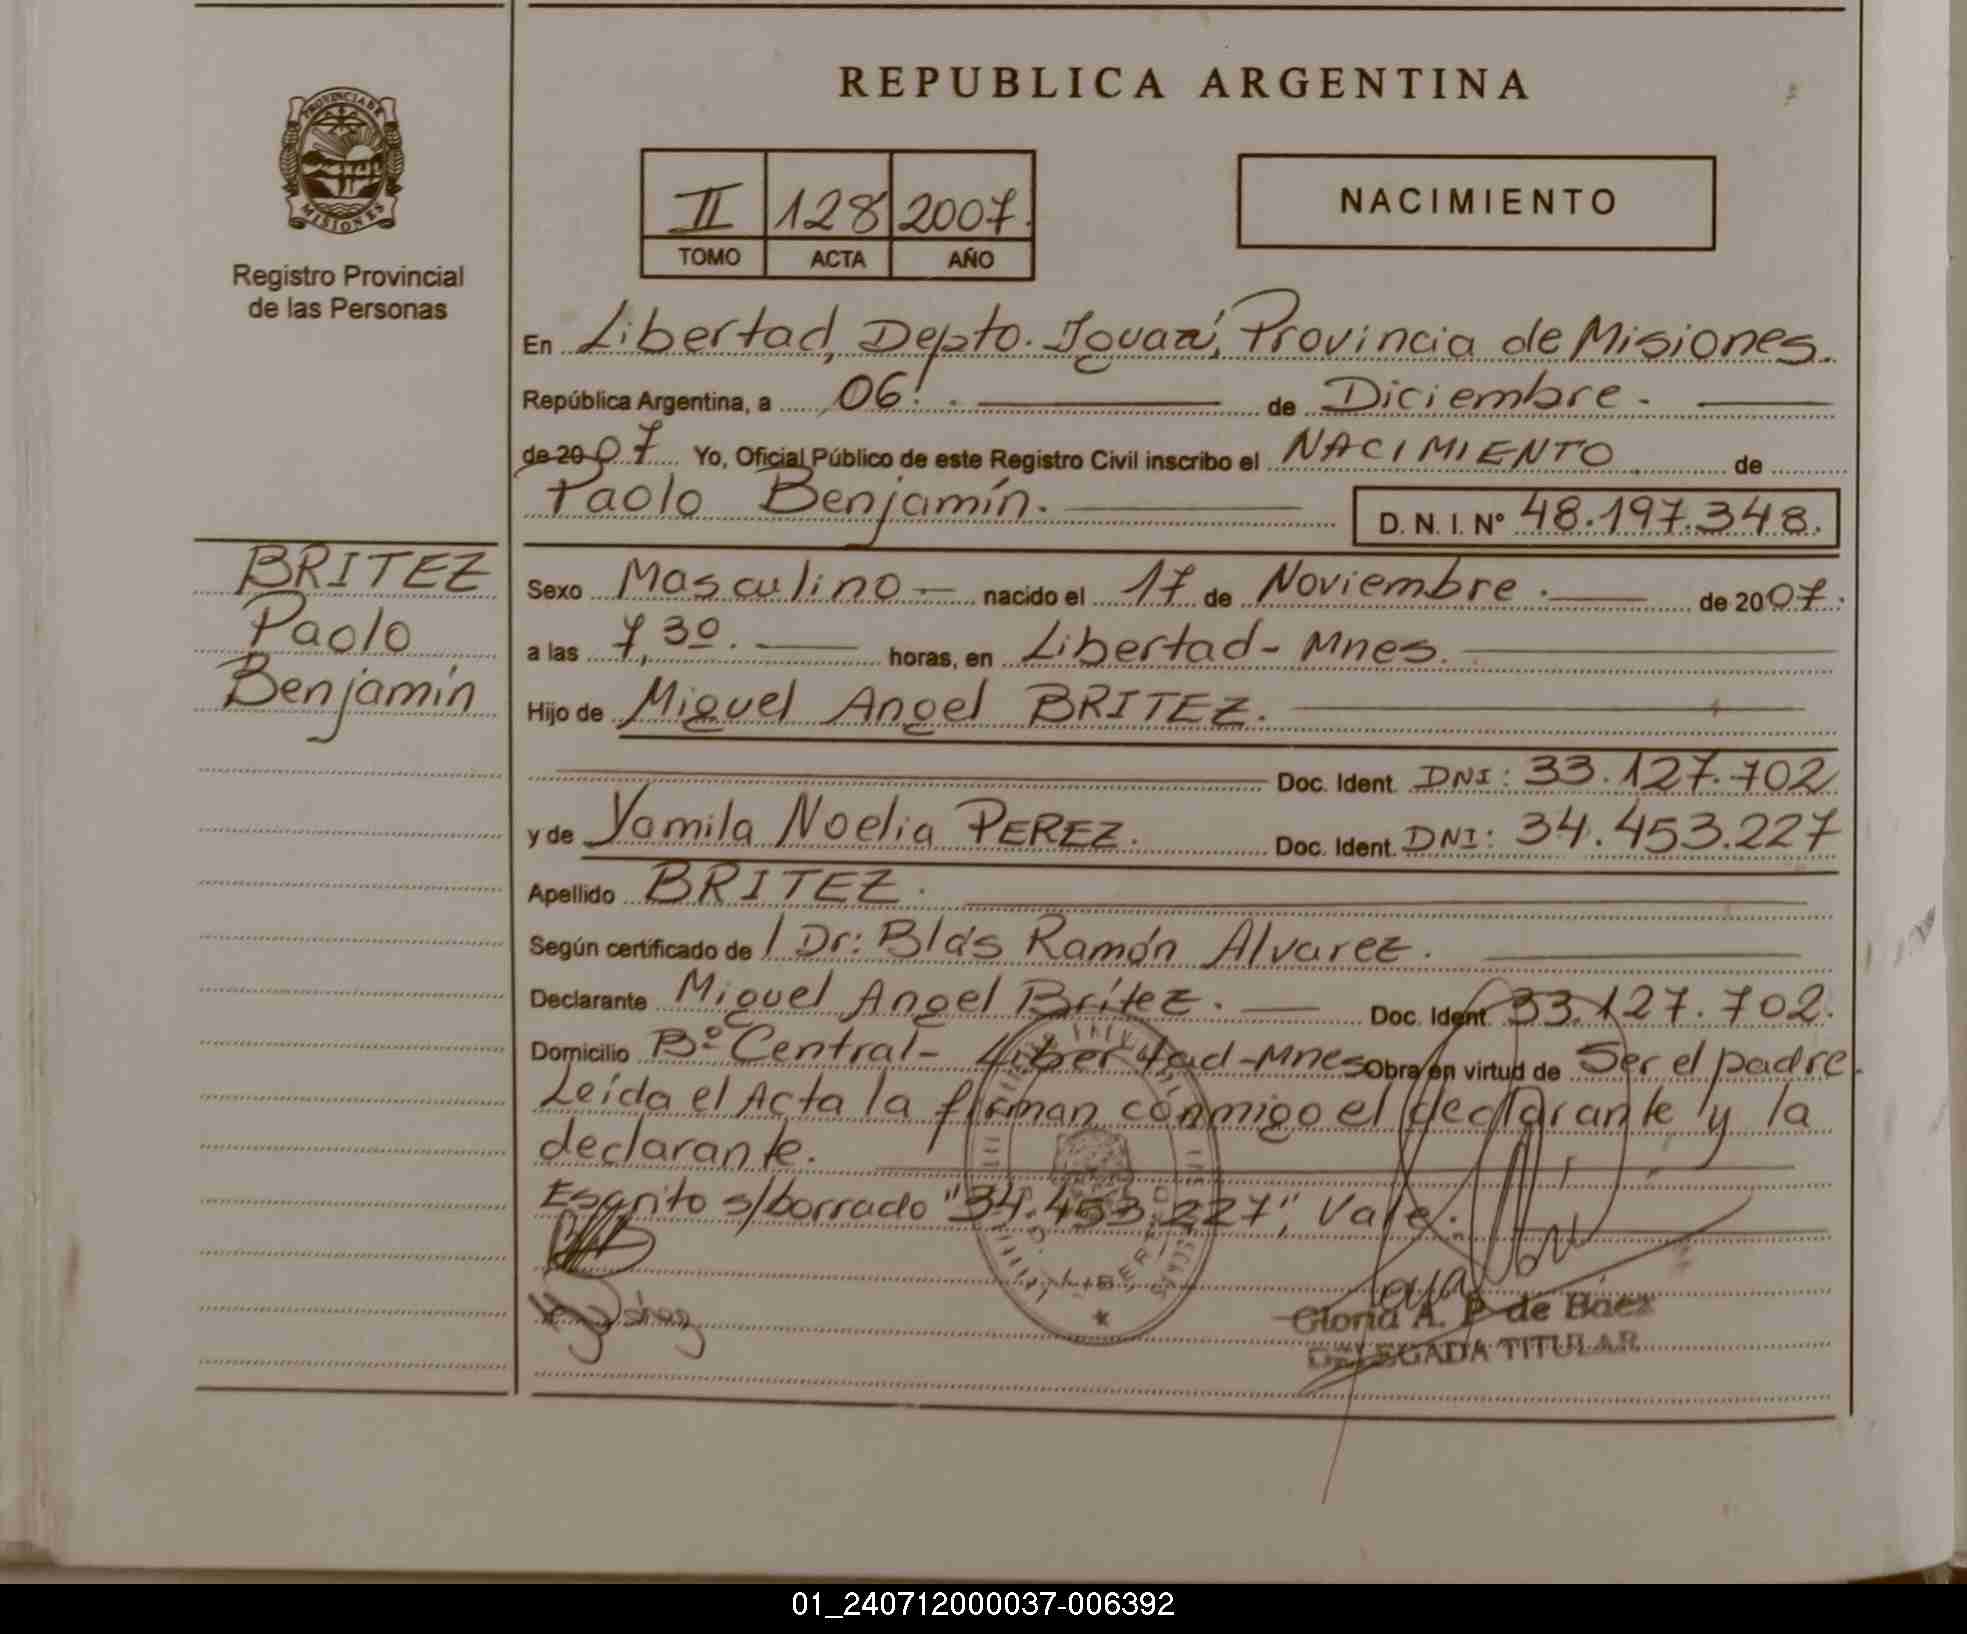 REPUBLICA ARGENTINA
PROVINCIA DE MISIONES
Registro Provincial
de las Personas
II 128 2007.
TOMO ACTA AÑO
NACIMIENTO
En Libertad, Depto. Iguazú, Provincia de Misiones.
República Argentina, a 06. de Diciembre.
de 2007 Yo, Oficial Público de este Registro Civil inscribo el NACIMIENTO de
Paolo Benjamín. D. N. I. Nº 48.197.348.
BRITEZ
Paolo
Benjamín
Sexo Masculino nacido el 17 de Noviembre. de 2007.
a las 7,30. horas, en Libertad - Mnes.
Hijo de Miguel Angel BRITEZ.
Doc. Ident. DNI: 33.127.702
y de Yamila Noelia PEREZ. Doc. Ident. DNI: 34.453.227
Apellido BRITEZ.
Según certificado de Dr: Blás Ramón Alvarez.
Declarante Miguel Angel Brítez. Doc. Ident. 33.127.702.
Domicilio Bº Central - Libertad - Mnes Obra en virtud de Ser el padre.
Leída el Acta la firman conmigo el declarante y la
declarante.
Escrito s/borrado "34.453.227", Vale.
Gloria A. P. de Báez
DELEGADA TITULAR
01_240712000037-006392